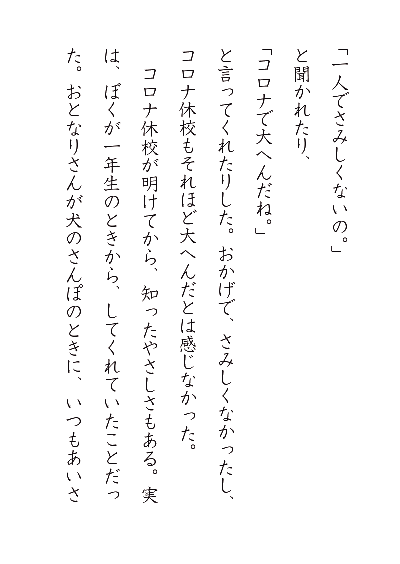 「一人でさみしくないの。」
と聞かれたり、
「コロナで大へんだね。」
と言ってくれたりした。おかげで、さみしくなかったし、
コロナ休校もそれほど大へんだとは感じなかった。
　コロナ休校が明けてから、知ったやさしさもある。実
は、ぼくが一年生のときから、してくれていたことだっ
た。おとなりさんが犬のさんぽのときに、いつもあいさ